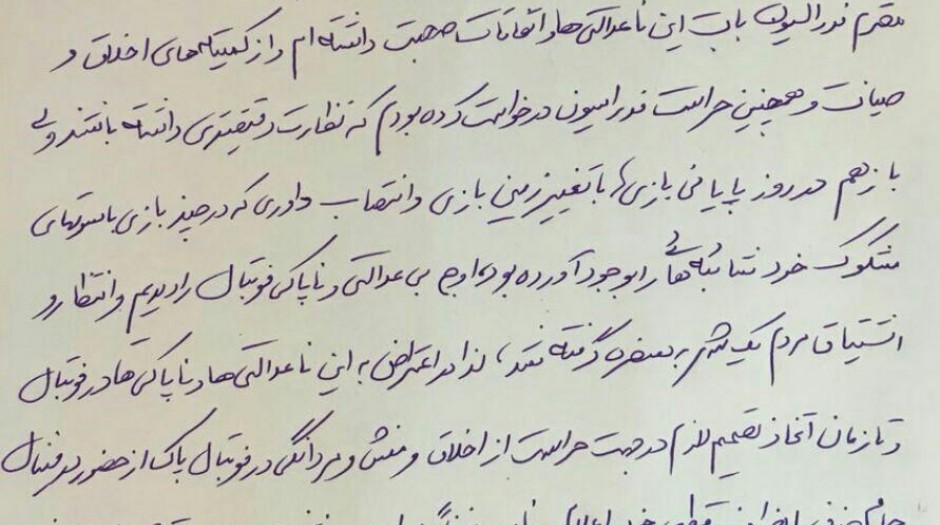 محترم فدراسیون بابت این ناعدالتی‌ها و اتفاقات صحبت داشته‌ام و از کمیته‌های اخلاق و
صیانت و همچنین حراست فدراسیون درخواست کرده بودم که نظارت دقیقتری داشته باشند ولی
بازهم در روز پایانی بازی‌ها، با تغییر زمین بازی و انتصاب داوری که در چند بازی با سوتهای
مشکوک خود شائبه‌هائی را بوجود آورده بود، اوج بی عدالتی و ناپاکی فوتبال را دیدیم و انتظار و
اشتیاق مردم یک شهر به سخره گرفته شد، لذا در اعتراض به این ناعدالتی‌ها و ناپاکی‌ها در فوتبال
و تا زمان اتخاذ تصمیم لازم در جهت حراست از اخلاق و منش و مردانگی در فوتبال پاک از حضور در فوتبال